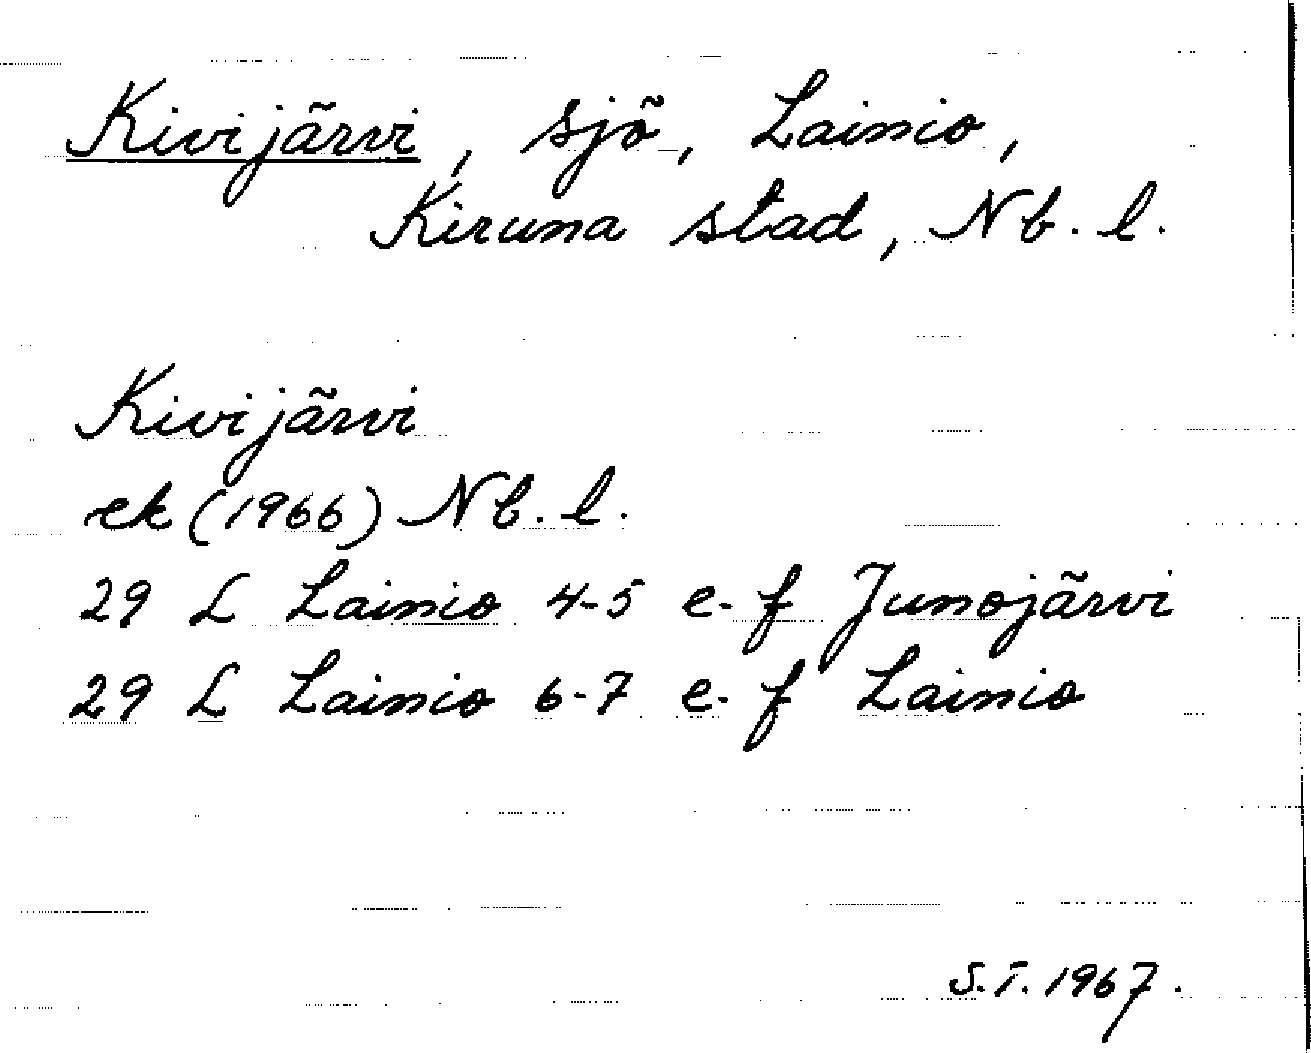 Kivijärvi, sjö, Lainio,
Kiruna stad, Nb. l.
Kivijärvi
ek (1966) Nb. l.
29 L Lainio 4-5 e-f Junojärvi
29 L Lainio 6-7 e-f Lainio
S.T. 1967.